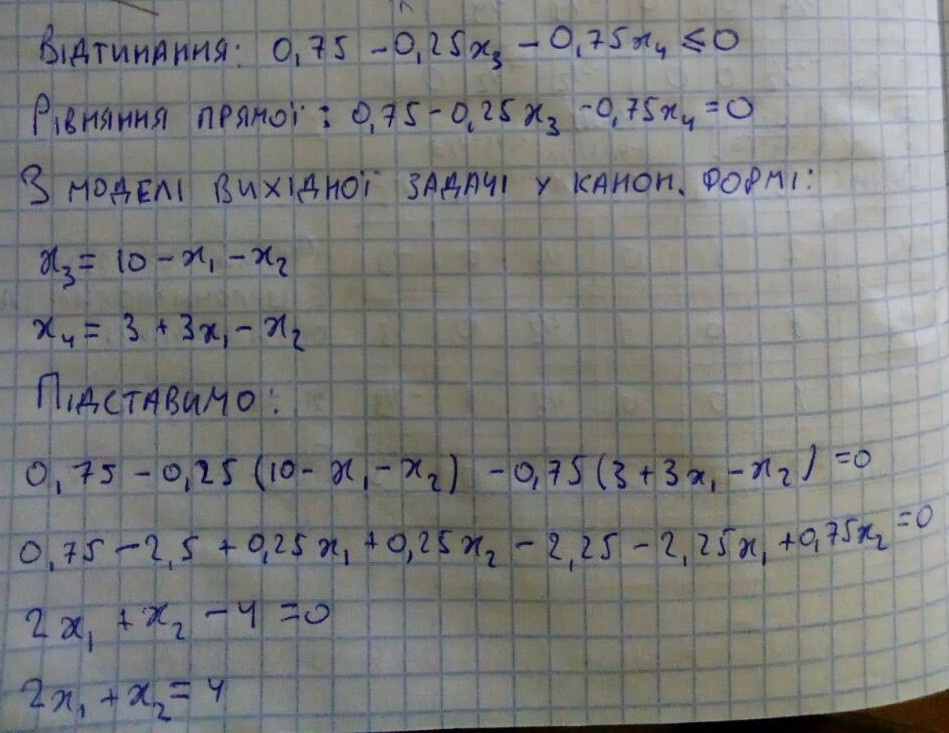 Відтинання: 0,75 - 0,25x₃ - 0,75x₄ ≤ 0
Рівняння прямої: 0,75 - 0,25x₃ - 0,75x₄ = 0
З моделі вихідної задачі у канон. формі:
x₃ = 10 - x₁ - x₂
x₄ = 3 + 3x₁ - x₂
Підставимо:
0,75 - 0,25(10 - x₁ - x₂) - 0,75(3 + 3x₁ - x₂) = 0
0,75 - 2,5 + 0,25x₁ + 0,25x₂ - 2,25 - 2,25x₁ + 0,75x₂ = 0
2x₁ + x₂ - 4 = 0
2x₁ + x₂ = 4